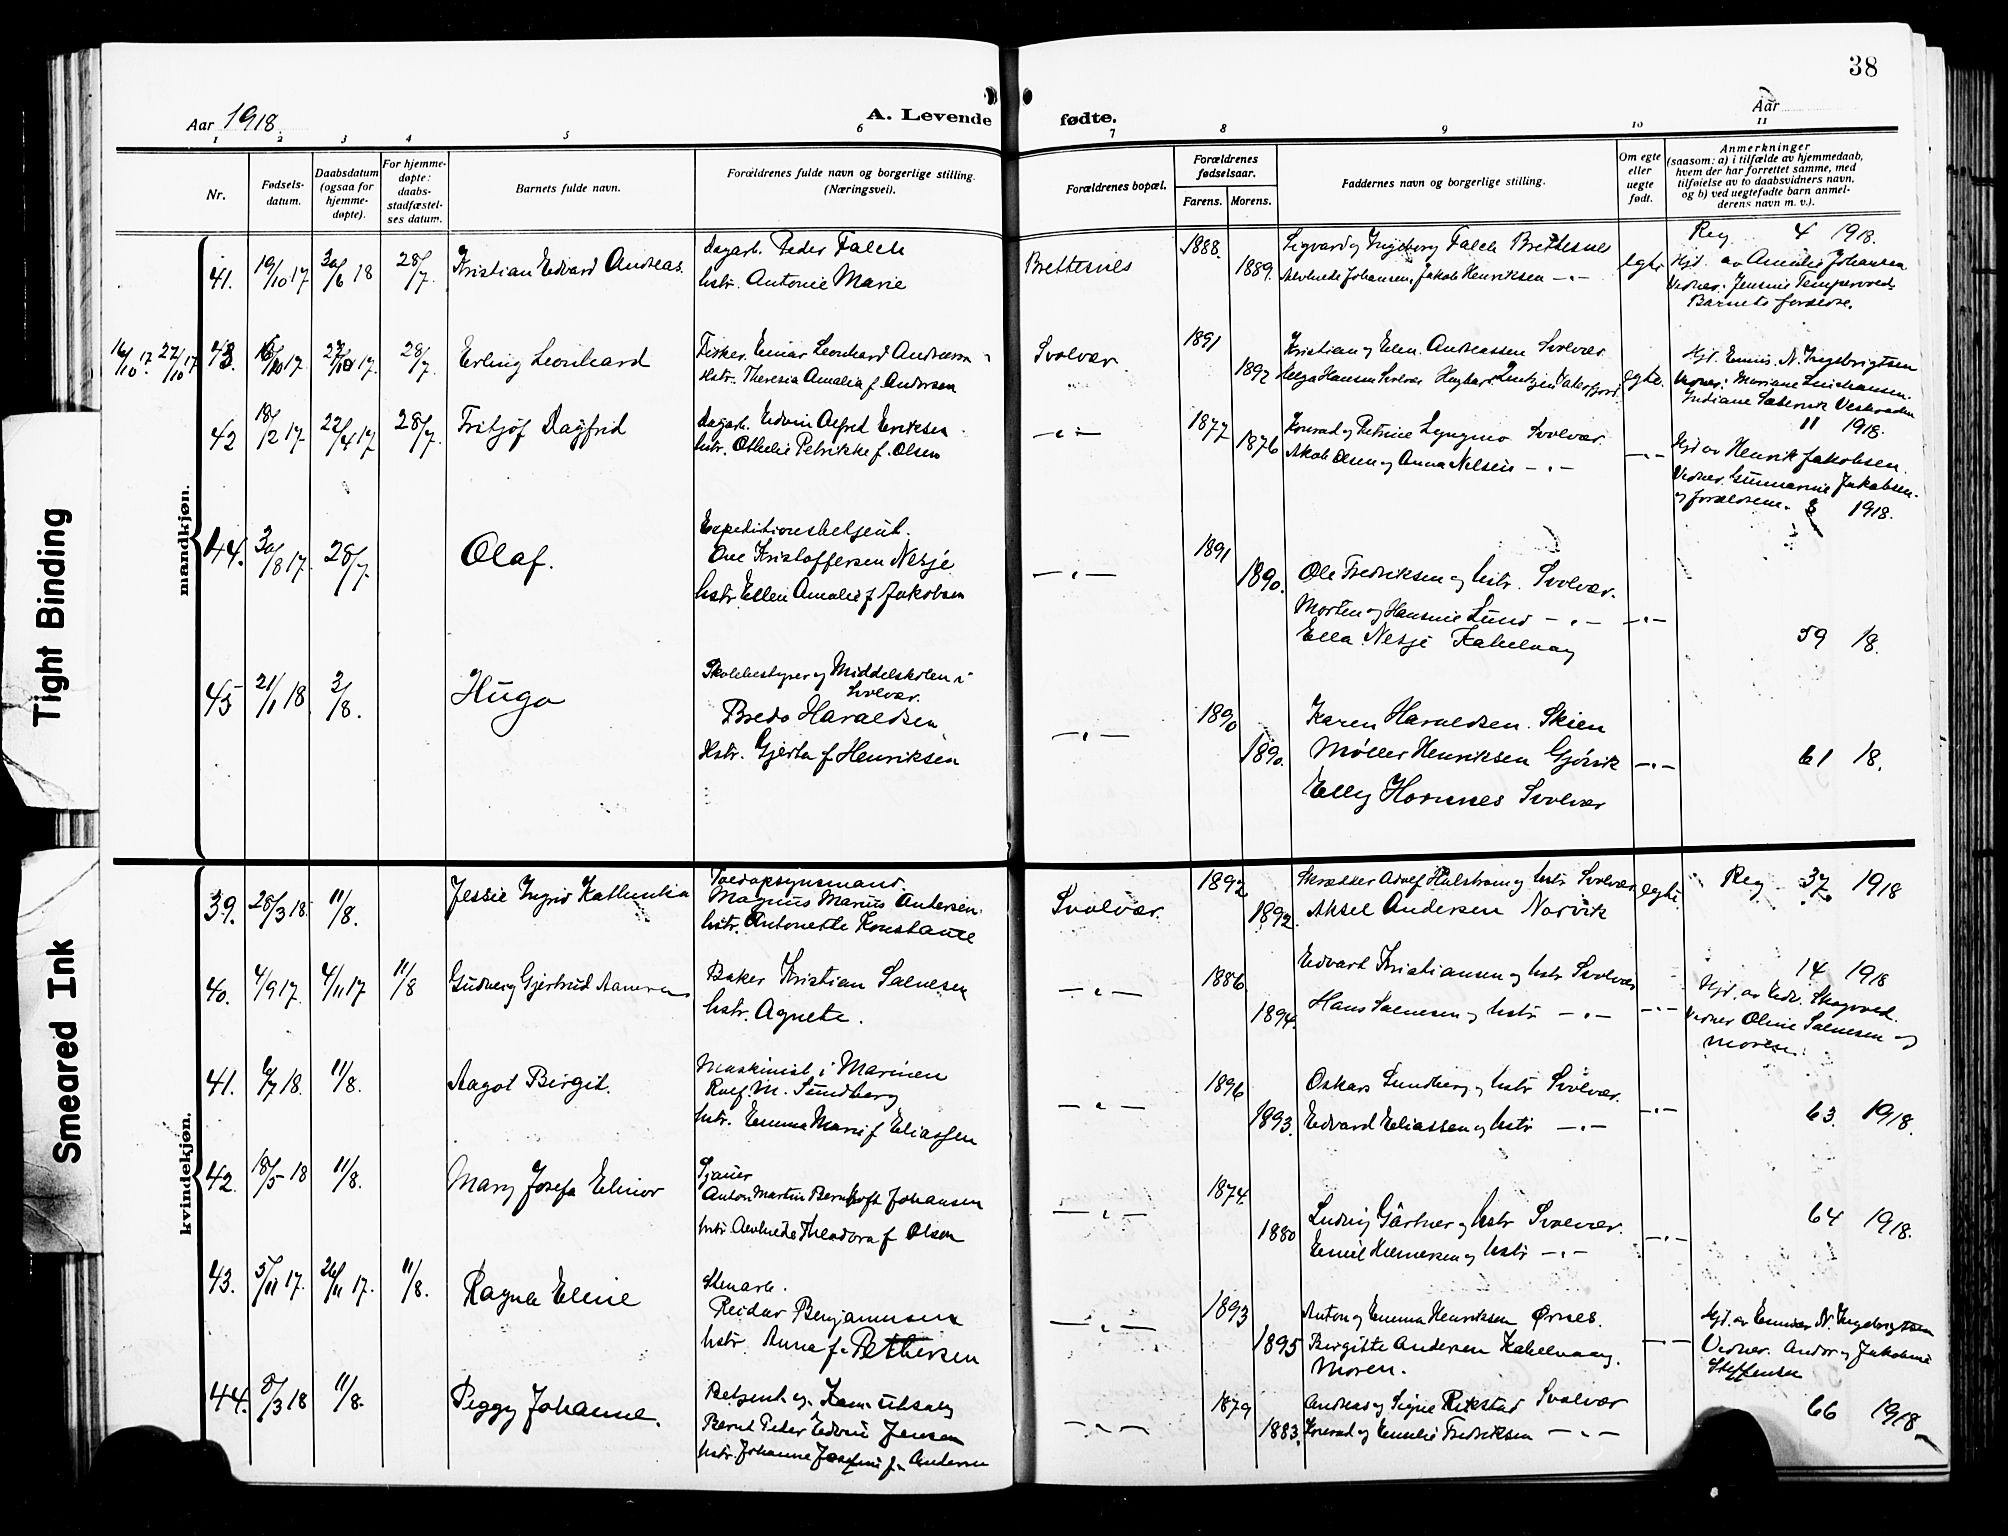 38
Aar 1918.
A. Levende fødte.
Aar
1 2 3 4 5 6 7 8 9 10 11
Nr.
Fødsels-
datum.
Daabsdatum
(ogsaa for
hjemme-
døpte).
For hjemme-
døpte:
daabs-
stadfæstel-
ses datum.
Barnets fulde navn.
Forældrenes fulde navn og borgerlige stilling.
(Næringsvei).
Forældrenes bopæl.
Forældrenes
fødselsaar.
Farens. Morens.
Faddernes navn og borgerlige stilling.
Om egte
eller
uegte
født.
Anmerkninger
(saasom: a) i tilfælde av hjemmedaab,
hvem der har forrettet samme, med
tilføielse av to daabsvidners navn,
og b) ved uegtefødte barn anmel-
derens navn m. v.).
mandkjøn.
41. 19/10 17 30/6 18 28/7. Kristian Edvard Andreas.
Dagarb. Peder Falch
hstr. Antonie Marie
Brettesnes
1888.
1889.
Sigvard og Ingeborg Falch Brettesnes
Alvhilde Johansen, Jakob Henriksen -"-
egte
Reg. 4 1918.
Hjd. av Amalie Johansen
Vidner: Jensine
Barnets forældre.
16/10 17. 27/10 17 43. 28/7. Erling Leonhard
Fisker. Einar Leonhard Andreassen
Hstr. Theresia Amalia f. Andersen
Svolvær
1891
1892
Kristian og Elen Andreassen Svolvær
Helga Hansen Svolvær
egte.
Hjd. Emma N. Ingebrigtsen
Vidner: Mariane
11 1918.
42 18/12 17. 22/4 17. 28/7. Fritjof Dagfrid
Dagarb. Edvin Alfred Eriksen
hstr. Othelie Petrikke f. Olsen
-"-
1877
1876
Konrad og Petrine Lyngmo Svolvær.
Jakob Olsen og Anna Nelsen -"-
-"-
Hjd av Henrik Jakobsen.
Vidner. Gunnarine Jakobsen.
og forældrene. 8 1918.
44. 30/8 17. 28/7. Olaf.
Expeditionsbetjent.
Ove Kristoffersen Nesje
hstr. Ellen Amalie f. Jakobsen
-"-
1891
1890.
Ole Fredriksen og hstr. Svolvær.
Morten og Hansine Lund -"-
Ella Nesje Kabelvaag
-"-
59 18.
45 21/1 18 2/8. Hugo
Skolebestyrer og Middelskolen i
Svolvær.
Bredo Haraldsen
Hstr. Gjerta f. Henriksen
-"-
1890
1890.
Karen Haraldsen. Skien
Møller Henriksen Gjøvik
Elly Hornnes Svolvær
-"-
61 18.
kvindekjøn.
39. 28/3 18. 11/8. Jessie Ingrid Kathinka
Toldopsynsmand.
Magnus Marius Antersen.
hstr. Antonette Konstance
Svolvær.
1892
1892.
Skrædder Adolf Hulstrøm og hstr Svolvær
Aksel Andersen Narvik
egte.
Reg. 37. 1918
40. 4/9 17. 4/11 17 11/8 Gudveig Gjertrud
Baker Kristian Salnesen
hstr. Agnete.
-"-
1886
1894.
Edvart Kristiansen og hstr Svolvær
Hans Salnesen og hstr -"-
-"-
14 1918
Hjd. av Edv. Skogvad.
Vidner Oline Salnesen og
moren.
41. 6/7 18. 11/8. Aagot Birgit.
Maskinist i Marinen
Rolf M. Sundberg
hstr. Emma Marie f. Eliassen
-"-
1896
1893.
Oskar Sundberg og hstr Svolvær.
Edvard Eliassen og hstr -"-
-"-
63. 1918.
42. 18/5 18 11/8. Mary Josefa Elinor
Sjauer
Anton Martin Bernhoft Johansen
hstr. Alvhilde Theodora f. Olsen
-"-
1874
1880
Ludvig Gärtner og hstr Svolvær.
Emil Hilmersen og hstr -"-
-"-
64 1918.
43. 5/11 17. 26/11 17. 11/8. Ragna Eline
Stenarb.
Reidar Benjaminsen
hstr. Anna f. Pettersen
-"-
1893
1895
Anton og Emma Henriksen Ørnes.
Birgitte Andersen Kabelvaag.
Moren.
Hjd. av Emma N. Ingebrigtsen
Vidner. Andor og Jakobine
Steffensen
44. 8/3 18 11/8. Peggy Johanne.
Betjent og Kom. utsalg
Bernt Peder Edvin Jensen
hstr. Johanne Josefine f. Andersen
-"-
1879
1883.
Andreas og Signe Rikstad Svolvær
Konrad og Emilie Fredriksen -"-
66 1918.
Tight Binding
Smeared Ink